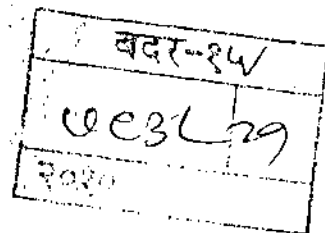 बदर-१५
७९३८ २१
२०१०